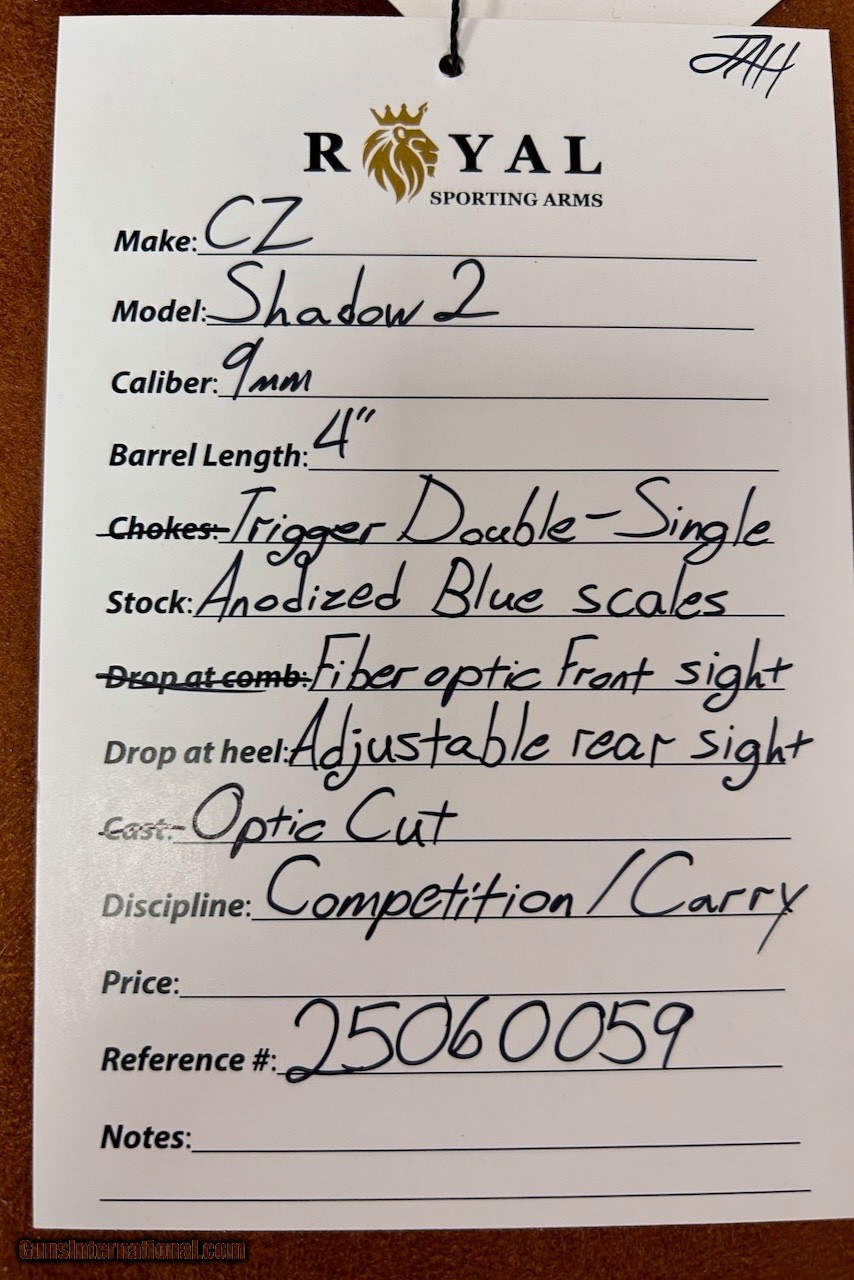 JAH
ROYAL
SPORTING ARMS
Make: CZ
Model: Shadow 2
Caliber: 9mm
Barrel Length: 4"
Chokes: Trigger Double-Single
Stock: Anodized Blue scales
Drop at comb: Fiber optic Front sight
Drop at heel: Adjustable rear sight
Cast: Optic Cut
Discipline: Competition/Carry
Price:
Reference #: 25060059
Notes:
GunsInternational.com